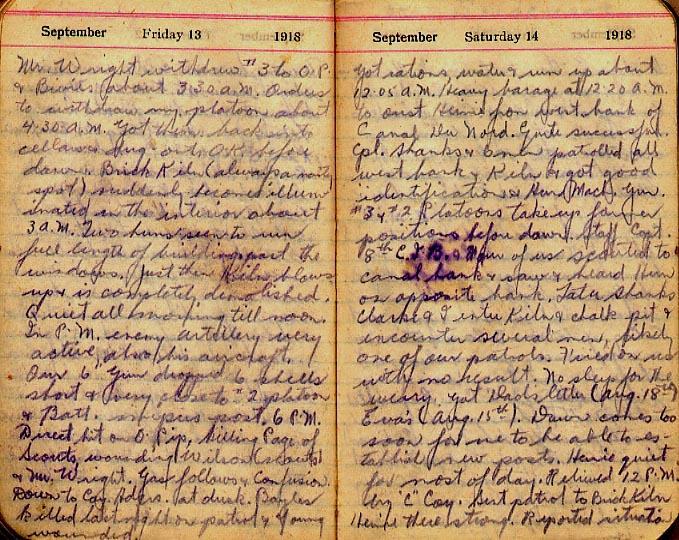 September Friday 13 1918
Mr. Wright withdrew #3 to O.P.
& Bivvies (about 3:30 a.m. Orders
to withdraw my platoon about
4:30 A.M. Got them back into
cellars & dug outs O.K. before
dawn. Brick Kiln (always a nasty
spot) suddenly becomes illum
inated in the interior about
3 a.m. Two huns seen to run
full length of building past the
windows. Just then Kiln blows
up & is completely demolished.
Quiet all morning till noon.
In P.M. enemy artillery very
active, also his aircraft.
Our 6" Gun dropped 6 shells
short & very close to #2 platoon
& Batt. post. 6 P.M.
Direct hit on O Pip, killing Page of
Scouts, wounding Wilson (scouts)
& Mr. Wright. Gas follows & Confusion.
Down to Coy Hdqrs. at dusk. Bayles
killed last night on patrol & Young
wounded.
September Saturday 14 1918
Got rations, water & run up about
12.05 a.m. Heavy barage at 12:20 A.M.
to oust Heinie from west bank of
Canal Du Nord. Quite successful.
Cpl. Shanks & patrolled all
west bank & Kiln & got good
identifications & Hun Mach. Gun.
#3 & #2 Platoons take up former
positions before dawn. Staff Capt.
8th C.I.B. & of us scouted to
canal bank & saw & heard Hun
on opposite bank. Later Shanks
Clarke & I enter Kiln & chalk pit &
encounter several men, likely
one of our patrols. Fired on us
with no result. No sleep for the
weary. Got Dads letter (Aug. 18th)
Eva's (Aug. 15th). Dawn comes too
soon for me to be able to es-
tablish new posts. Heinie quiet
for most of day. Relieved 12 P.M.
by "C" Coy. Sent patrol to Brick Kiln
Heinie there strong. Reported situation